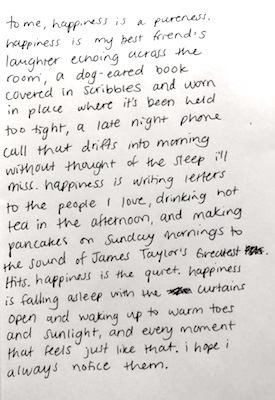 to me, happiness is a pureness.
happiness is my best friend's
laughter echoing across the
room, a dog-eared book
covered in scribbles and worn
in place where it's been held
too tight, a late night phone
call that drifts into morning
without thought of the sleep i'll
miss. happiness is writing letters
to the people I love, drinking hot
tea in the afternoon, and making
pancakes on Sunday mornings to
the sound of James Taylor's Greatest
Hits. happiness is the quiet. happiness
is falling asleep with the curtains
open and waking up to warm toes
and sunlight, and every moment
that feels just like that. i hope i
always notice them.